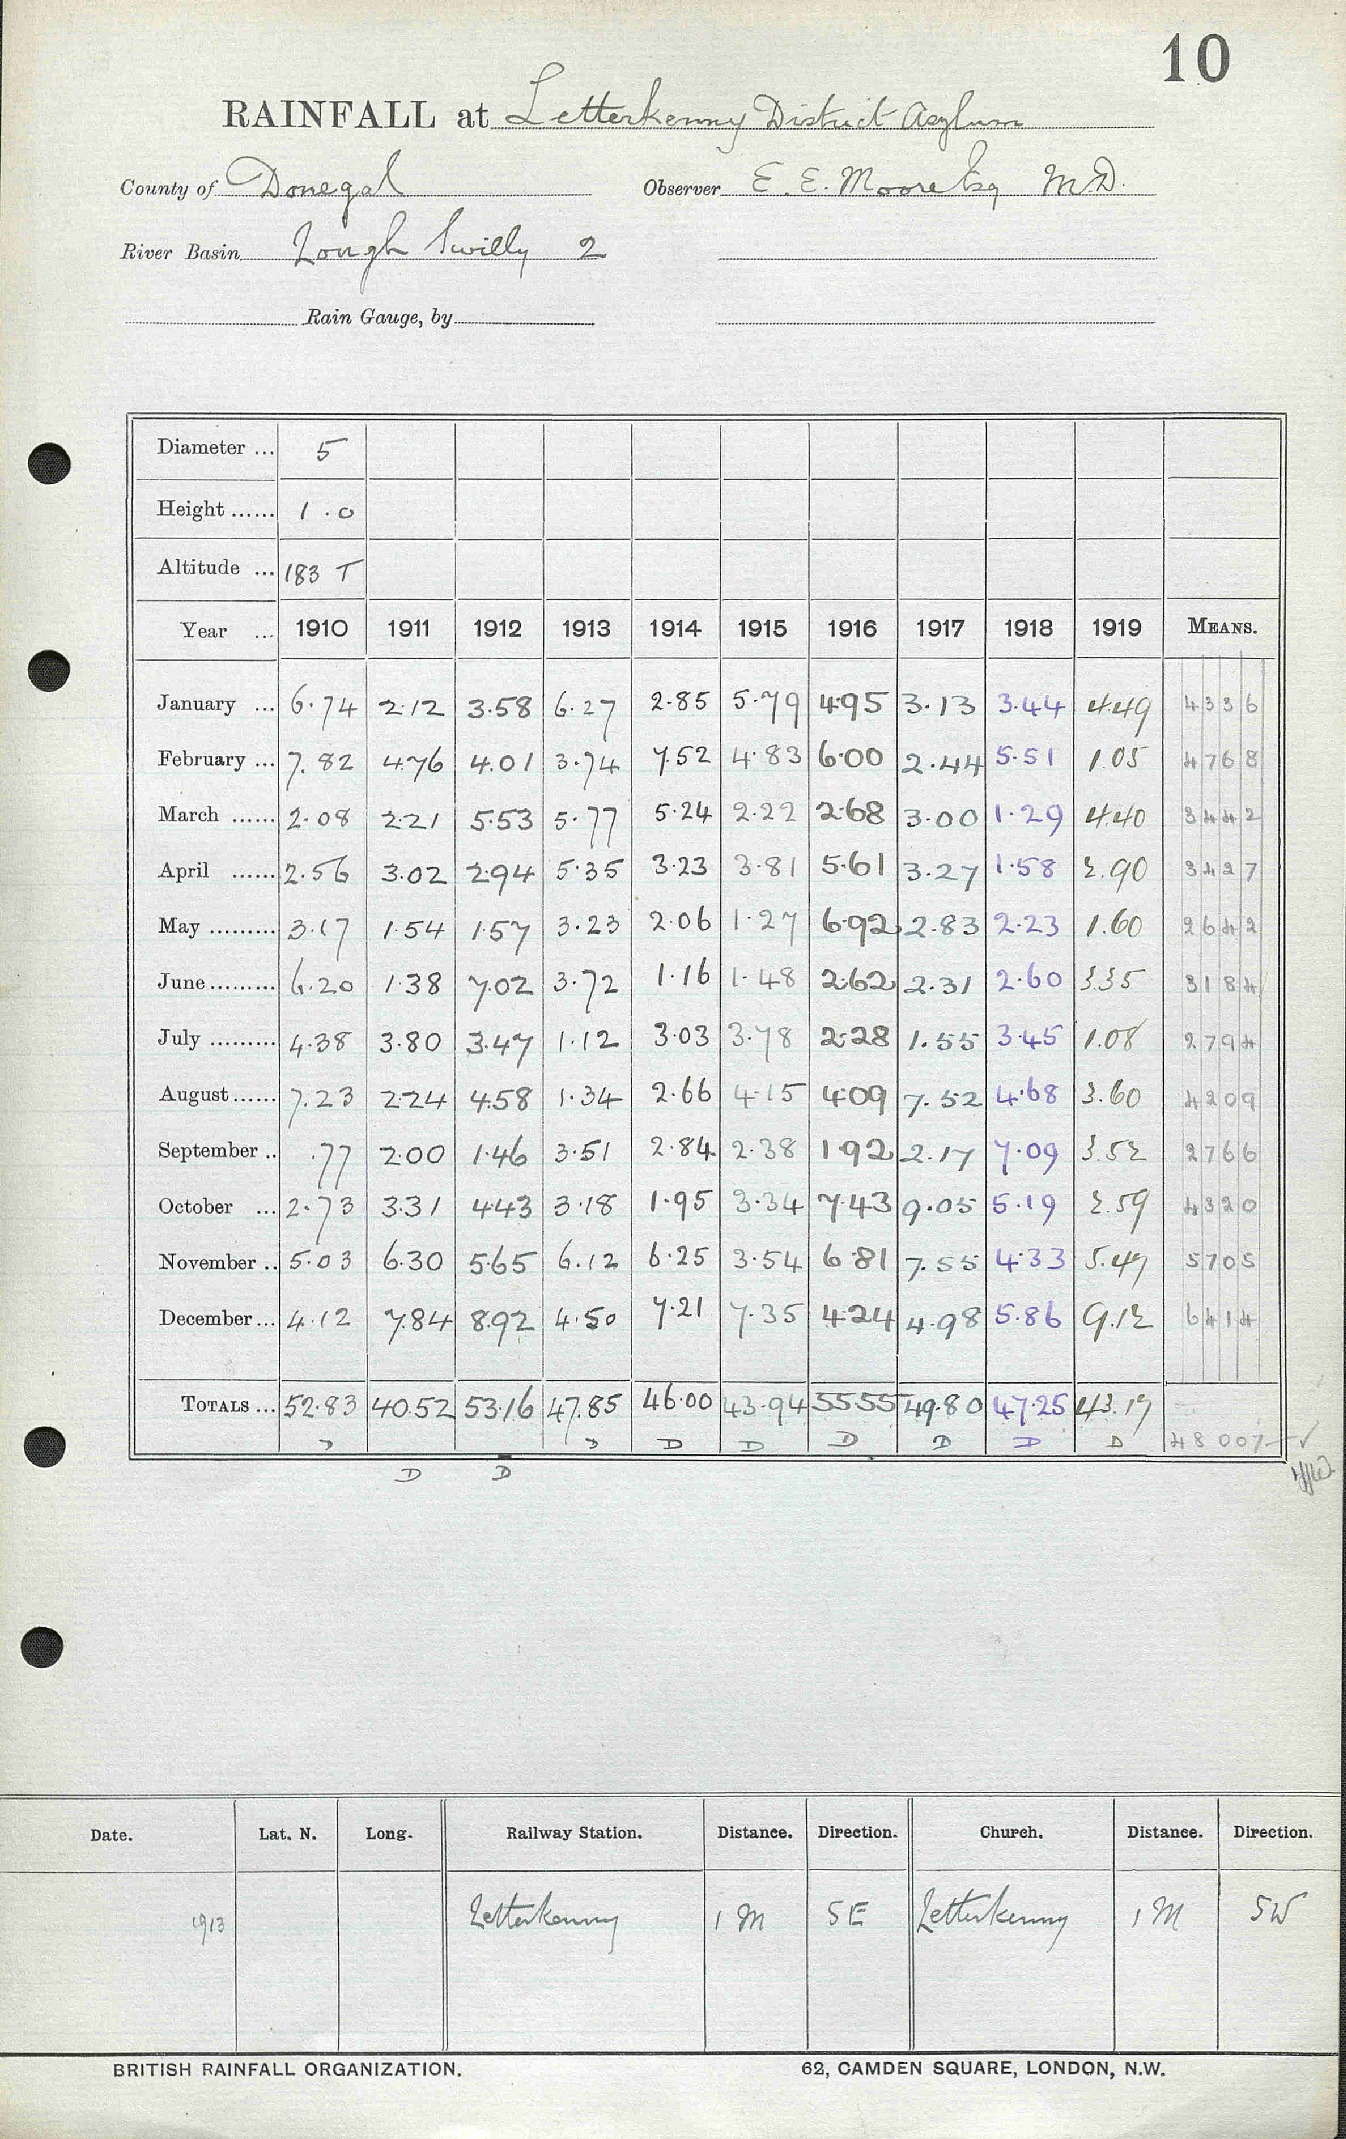 10
RAINFALL at Letterkenny District Asylum
County of Donegal Observer E. E. Moore Esq M.D.
River Basin Lough Swilly 2
Rain Gauge, by
Diameter ... 5
Height ...... 1.0
Altitude ... 183 T
Year ... 1910 1911 1912 1913 1914 1915 1916 1917 1918 1919 MEANS.
January ... 6.74 2.12 3.58 6.27 2.85 5.79 4.95 3.13 3.44 4.49 4336
February ... 7.82 4.76 4.01 3.74 7.52 4.83 6.00 2.44 5.51 1.05 4768
March ...... 2.08 2.21 5.53 5.77 5.24 2.22 2.68 3.00 1.29 4.40 3442
April ...... 2.56 3.02 2.94 5.35 3.23 3.81 5.61 3.27 1.58 2.90 3427
May ......... 3.17 1.54 1.57 3.23 2.06 1.27 6.92 2.83 2.23 1.60 2642
June ......... 6.20 1.38 7.02 3.72 1.16 1.48 2.62 2.31 2.60 3.35 3184
July ......... 4.38 3.80 3.47 1.12 3.03 3.78 2.28 1.55 3.45 1.08 2794
August ...... 7.23 2.24 4.58 1.34 2.66 4.15 4.09 7.52 4.68 3.60 4209
September .. .77 2.00 1.46 3.51 2.84 2.38 1.92 2.17 7.09 3.52 2766
October ... 2.73 3.31 4.43 3.18 1.95 3.34 7.43 9.05 5.19 2.59 4320
November .. 5.03 6.30 5.65 6.12 6.25 3.54 6.81 7.55 4.33 5.47 5705
December ... 4.12 7.84 8.92 4.50 7.21 7.35 4.24 4.98 5.86 9.12 6414
TOTALS ... 52.83 40.52 53.16 47.85 46.00 43.94 55.55 49.80 47.25 43.17
D D D D D D D D 48 007 ✓
D D
Date. Lat. N. Long. Railway Station. Distance. Direction. Church. Distance. Direction.
1913 Letterkenny 1 M SE Letterkenny 1 M SW
BRITISH RAINFALL ORGANIZATION. 62, CAMDEN SQUARE, LONDON, N.W.